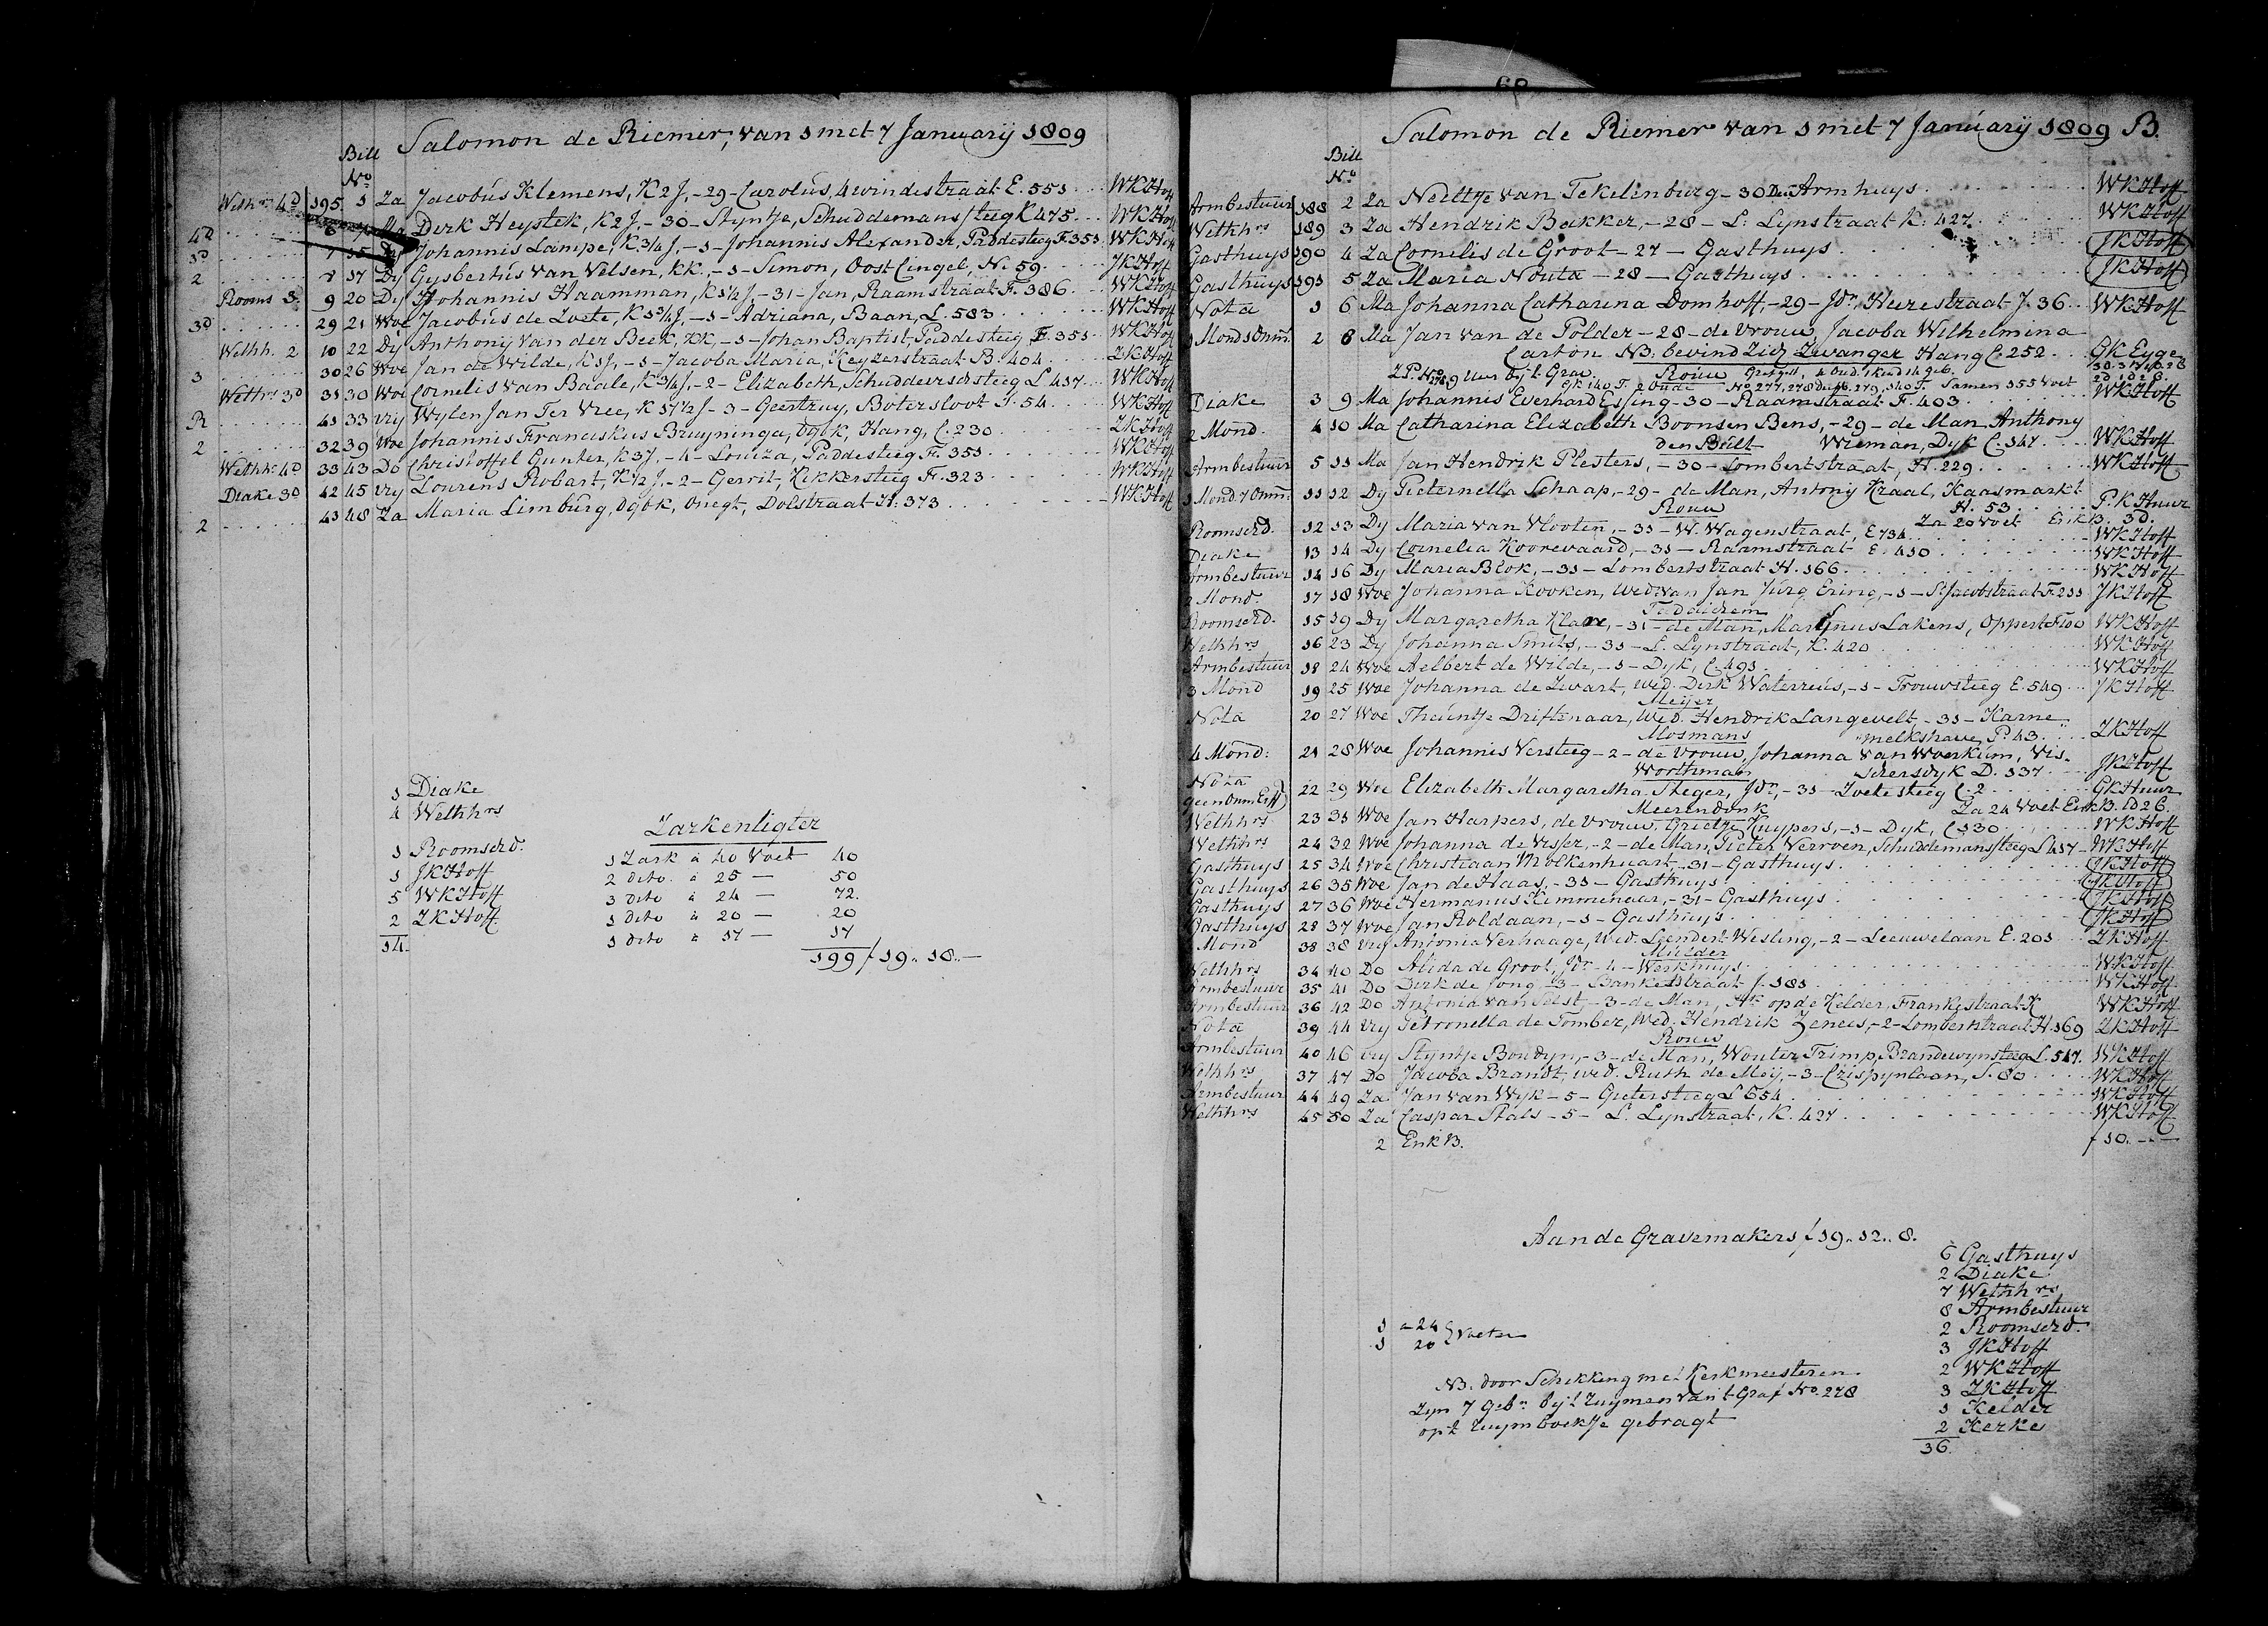 Salomon de Riemer, van 1 met 7 January 1809
Bill
No
Wethhrs 4D 195 1 Za Jacobus Klemens, K 2 J, - 29 - Carolus, 4 windestraat E. 551 WKHoff
4D 6 7 Ma Dirk Heystek, K 2 J, - 30 - Styntje, Schuddemanssteeg K 475 WKHoff
3D 7 15 Dy Johannis Lampe, K 3/4 J, - 1 - Johannis Alexander, Paddesteeg F 351 WKHoff
2 8 17 Dy Gysbertus van Velsen, KK, - 1 - Simon, Oost Cingel, N. 59 JKHoff
Rooms 3. 9 20 Dy Johannis Haamman, K 1 1/2 J, - 31 - Jan, Raamstraat F. 386 WKHoff
3D 29 21 Woe Jacobus de Zoete, K 5 3/4 J, - 1 - Adriana, Baan, L. 583 WKHoff
Wethh. 2 10 22 Dy Anthony van der Beek, KK, - 1 - Johan Baptist, Paddesteeg F 351 WKHoff
3 30 26 Woe Jan de Wilde, K 1 J, - 1 - Jacoba Maria, Keyzerstraat B. 404 ZKHoff
Wethrs 3D 31 30 Woe Cornelis van Baale, K 3/4 J, - 2 - Elizabeth, Schuddeverschsteeg L 437 WKHoff
R 41 33 Vry Wylen Jan Ter Vree, K 17 1/2 J - 3 - Geertruy, Botersloot I. 54 WKHoff
2 32 39 Woe Johannis Franciskus Bruyninga, dgbk, Hang, C. 230 ZKHoff
Wethh 4D 33 43 Do Christoffel Gunter, K 3 J, - 4 - Louiza, Paddesteeg F. 351 WKHoff
Diake 3D 42 45 Vry Lourens Robart, K 1/2 J, - 2 - Gerrit, Kikkersteeg F. 323 WKHoff
2 43 48 Za Maria Limburg, dgbk, Onegt, Dolstraat H. 373 WKHoff
1 Diake
4 Wethhrs
1 Roomschd.
1 JKHoff
5 WKHoff
2 ZKHoff
14.
Zarkenligter
1 Zark à 40 Voet 40
2 dito à 25 — 50
3 dito à 24 — 72.
1 dito à 20 — 20
1 dito à 17 — 17
199 f 19.. 18..—
Salomon de Riemer van 1 met 7 January 1809 B.
Bill
No
Armbestuur 188 2 Za Neeltje van Tekelenburg - 30 Dec Armhuys WKHoff
Wethhrs 189 3 Za Hendrik Bakker, - 28 - L. Lynstraat K. 427 WKHoff
Gasthuys 190 4 Za Cornelis de Groot - 27 - Gasthuys JKHoff
Gasthuys 191 5 Za Maria Nouta - 28 - Gasthuys JKHoff
Nota 1 6 Ma Johanna Catharina Domhoff, - 29 - Jdr, Heerestraat J. 36 WKHoff
1 Mond 1 Onm. 2 8 Ma Jan van de Polder - 28 - de Vrouw, Jacoba Wilhelmina
Carton NB. bevind Zich Zwanger Hang C. 252 GK Eyge
Rouw
Samen 355 Voet
Diake 3 9 Ma Johannis Everhard Essing - 30 - Raamstraat F. 403 WKHoff
2 Mond. 4 10 Ma Catharina Elizabeth Boonsen Bens, - 29 - de Man Anthony
den Bult Vreeman, Dyk C. 347 WKHoff
Armbestuur 5 11 Ma Jan Hendrik Plesters, - 30 - Lombertstraat, H. 229 WKHoff
1 Mond 7 Onm. 11 12 Dy Pieternella Schaap, - 29 - de Man, Antony Kraal, Kaasmarkt
Rouw H. 53 P.K Huur
Za 20 Voet Enk B. 3D.
Roomschd. 12 13 Dy Maria van Vlooten, - 31 - W. Wagenstraat, E 734 WKHoff
Diake 13 14 Dy Cornelia Koorevaard, - 31 - Raamstraat E. 410 WKHoff
Armbestuur 14 16 Dy Maria Blok, - 31 - Lombertstraat H. 166 WKHoff
2 Mond. 17 18 Woe Johanna Kooken, Wed. van Jan Jurg Ering, - 1 - St. Jacobstraat F. 233 JKHoff
Roomschd. 15 19 Dy Margaretha Klare, - 31 - de Man, Martinus Lakens, Oppert F 100 WKHoff
Wethhrs 16 23 Dy Johanna Smits, - 31 - L. Lynstraat, K. 420 WKHoff
Armbestuur 18 24 Woe Aelbert de Wilde, - 1 - Dyk, C. 491 WKHoff
3 Mond 19 25 Woe Johanna de Zwart, Wed. Dirk Waterreus, - 1 - Trouwsteeg E. 549 JKHoff
Meijer
Nota 20 27 Woe Theuntje Driftenaar, Wed. Hendrik Langevelt, - 31 - Karne
Mosmans melkshave, P. 43 ZKHoff
4 Mond: 21 28 Woe Johannis Versteeg - 2 - de Vrouw, Johanna van Woerkum, Vis.
Worthman schersdyk D. 337 JKHoff
Nota
geen Onm. 22 29 Woe Elizabeth Margaretha Steger, Jdr, - 31 - Zoetesteeg C. 2 GK Huur
Meerendonk Za 24 Voet Enk B.
Wethhrs 23 31 Woe Jan Harpers, de Vrouw, Grietje Kuypers, - 1 - Dyk, C 330 WKHoff
Wethhrs 24 32 Woe Johanna de Visser, - 2 - de Man, Pieter Verroen, Schuddemanssteeg L 437 WKHoff
Gasthuys 25 34 Woe Christiaan Molkenhuart, - 31 - Gasthuys JKHoff
Gasthuys 26 35 Woe Jan de Haas, - 31 - Gasthuys JKHoff
Gasthuys 27 36 Woe Hermanus Kemmenaar, - 31 - Gasthuys JKHoff
Gasthuys 28 37 Woe Jan Roldaan, - 1 - Gasthuys JKHoff
Mond 38 38 Vry Antonia Verhaage, Wed. Leendert Wesling, - 2 - Leeuwelaan E. 203 ZKHoff
Mulder
Wethhrs 34 40 Do Alida de Groot, Jdr - 4 - Werkhuys WKHoff
Armbestuur 35 41 Do Dirk de Jong - 3 - Banketstraat J. 383 WKHoff
Armbestuur 36 42 Do Antonia van Seest - 3 - de Man, op de Kelder, Frankestraat K WKHoff
Nota 39 44 Vry Petronella de Tomber, Wed. Hendrik Zenees, - 2 - Lombertstraat H. 169 ZKHoff
Rouw
Armbestuur 40 46 Vry Styntje Boudyn, - 3 - de Man, Wouter Trimp, Brandewynsteeg L. 547. WKHoff
Wethhrs 37 47 Do Jacoba Brandt, Wed. Ruth de Mey, - 3 - Crispynlaan, S. 80 WKHoff
Armbestuur 44 49 Za Jan van Wyk - 5 - Gietersteeg L 654 WKHoff
Wethhrs 45 50 Za Caspar Stals - 5 - L. Lynstraat, K. 427 WKHoff
2 Enk B. f 10.-.-
Aan de Gravemakers f 19.. 12.. 8.
6 Gasthuys
2 Diake
7 Wethhrs
8 Armbestuur
2 Roomschd.
3 JKHoff
2 WKHoff
3 ZKHoff
1 Kelder
2 Kerke
36.
1 a 24
1 20 Voeten
NB. door Schikking met Kerkmeesteren
Zyn 7 Gebn by 't Ruymen van 't Graf No. 278
op 't Ruymboekje gebragt